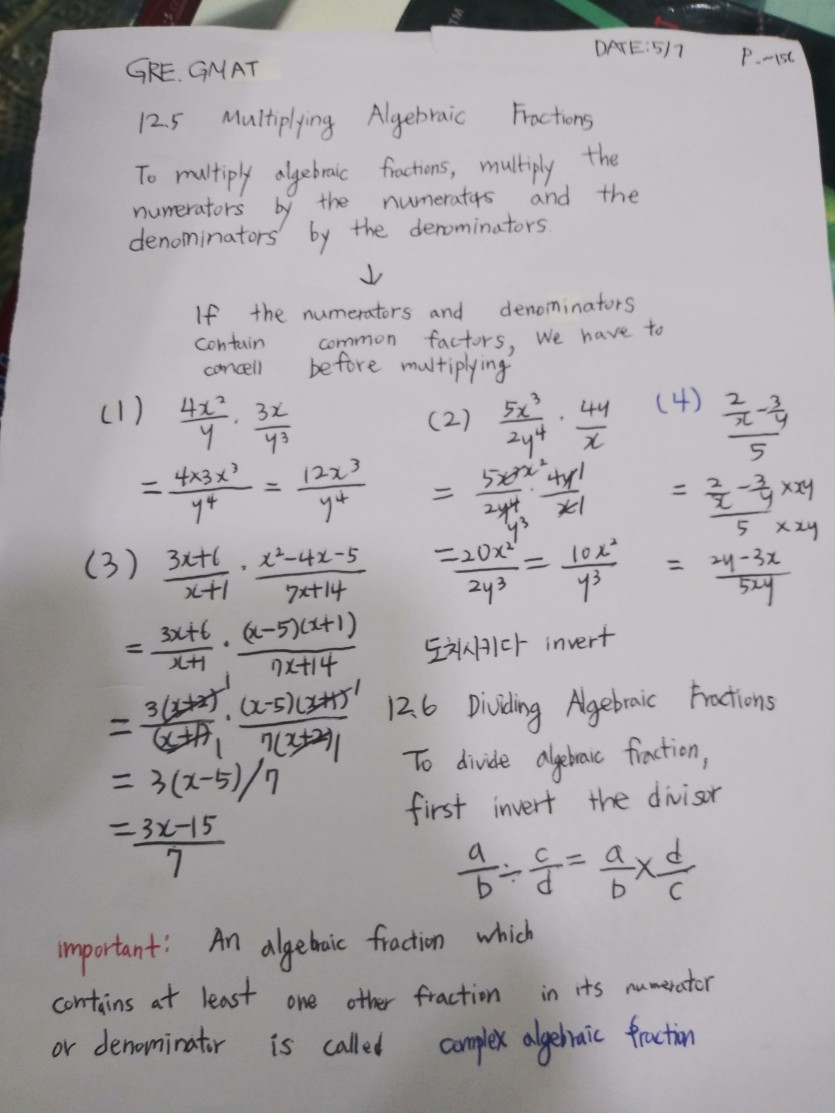 DATE: 5/7 P.~156
GRE. GMAT
12.5 Multiplying Algebraic Fractions
To multiply algebraic fractions, multiply the
numerators by the numerators and the
denominators by the denominators.
↓
If the numerators and denominators
contain common factors, we have to
cancell before multiplying
(1) 4x²/y · 3x/y³
= 4×3x³/y⁴ = 12x³/y⁴
(2) 5x³/2y⁴ · 4y/x
= 5x³x²/2y⁴y³ · 4y1/x1
= 20x²/2y³ = 10x²/y³
(4) (2/x - 3/y)/5
= (2/x - 3/y ×xy)/(5 ×xy)
= (2y-3x)/5xy
(3) (3x+6)/(x+1) · (x²-4x-5)/(7x+14)
= (3x+6)/(x+1) · (x-5)(x+1)/(7x+14)
= 3(x+2)1/(x+1)1 · (x-5)(x+1)1/7(x+2)1
= 3(x-5)/7
= (3x-15)/7
도치시키다 invert
12.6 Dividing Algebraic Fractions
To divide algebraic fraction,
first invert the divisor
a/b ÷ c/d = a/b × d/c
important: An algebraic fraction which
contains at least one other fraction in its numerator
or denominator is called complex algebraic fraction